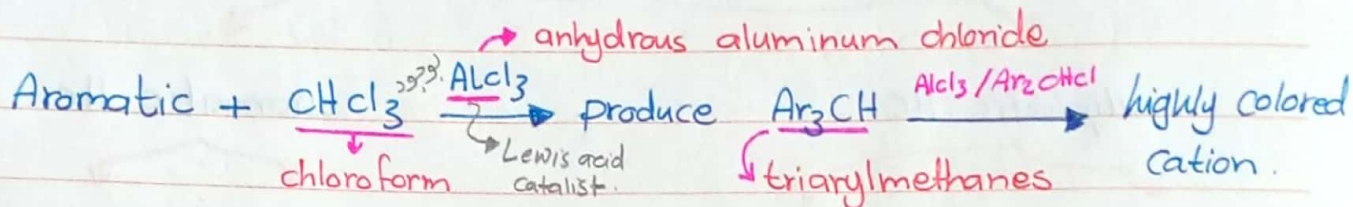 anhydrous aluminum chloride
Aromatic + CHCl3 ALCl3 produce Ar3CH AlCl3/Ar2CHCl highly colored
Lewis acid cation.
chloroform catalist. triarylmethanes